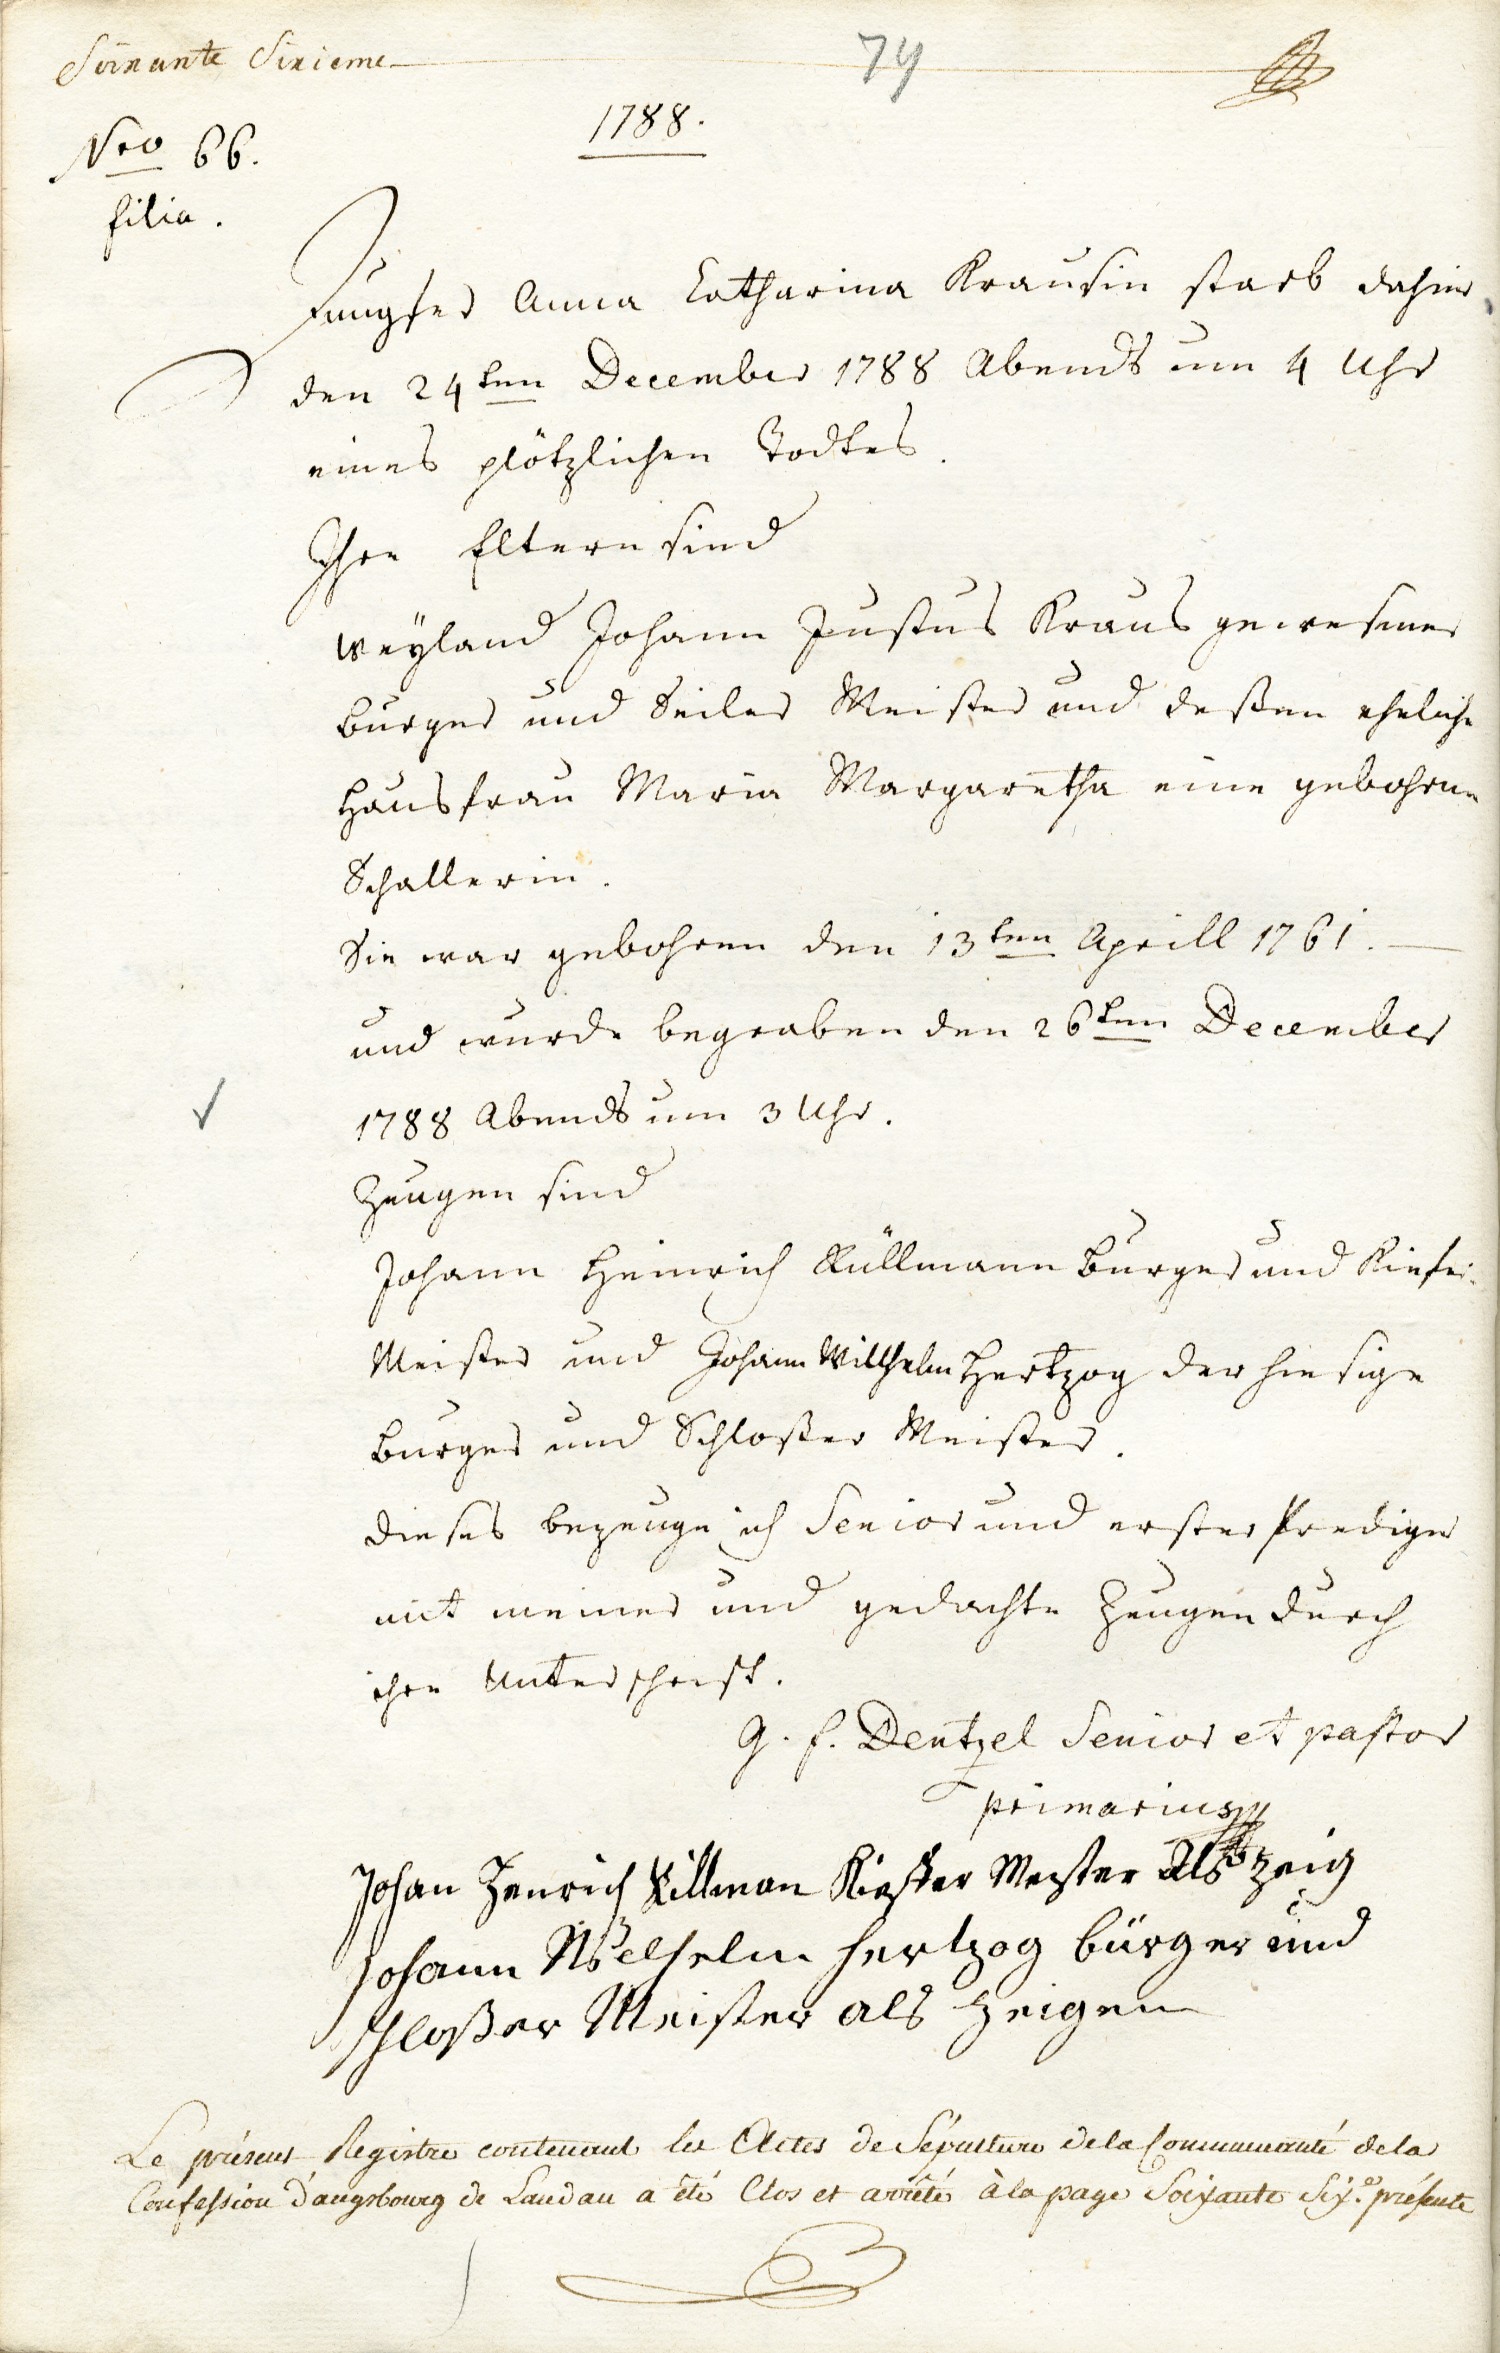 Soixante Sixieme
79
1788.
Nro 66.
filia.
Jungfer Anna Catharina Krausin starb dahier
den 24ten December 1788 Abends um 4 Uhr
eines plötzlichen Todtes.
Ihre Eltern sind
weyland Johann Justus Kraus gewesener
burger und Seiler Meister und deßen eheliche
Hausfrau Maria Margaretha eine gebohrne
Schallerin.
Sie war gebohren den 13ten Aprill 1761.
und wurde begraben den 26ten December
1788 Abends um 3 Uhr.
Zeugen sind
Johann Heinrich Küllmann burger und Kiefer
Meister und Johann Willhelm Hertzog der hiesige
burger und Schloßer Meister.
dieses bezeuge ich Senior und erster Prediger
mit meiner und gedachte Zeugen durch
ihre Unterschrift.
G. F. Dentzel Senior et pastor
primarius
Johan Henrich Killman Kieffer Meister Als zeig
Johann Wilhelm Hertzog bürger und
schloßer Meister als Zeigen
Le présent Registre contenant les Actes de Sépulture de la Communauté de la
Confession d'augsbourg de Landau a été Clos et arrêté à la page Soixante Sixe présente